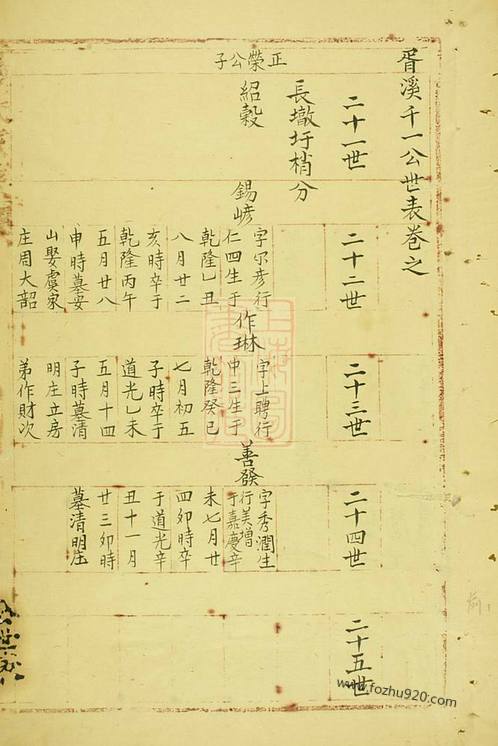 胥溪千一公世表卷之
二十一世
二十二世
二十三世
二十四世
二十五世
長墩圩梢分
正榮公子
紹穀
錫嵃
字尔彥行
仁四生于
乾隆乙丑
八月廿二
亥時卒于
乾隆丙午
五月廿八
申時墓安
山娶虞家
庄周大韶
作琳
字上聘行
申三生于
乾隆癸巳
七月初五
子時卒于
道光乙未
五月十四
子時墓清
明庄立房
弟作財次
善發
字秀潤生
行美增
于嘉慶辛
未七月廿
四卯時卒
于道光辛
丑十一月
廿三卯時
墓清明庄
www.fozhu920.com